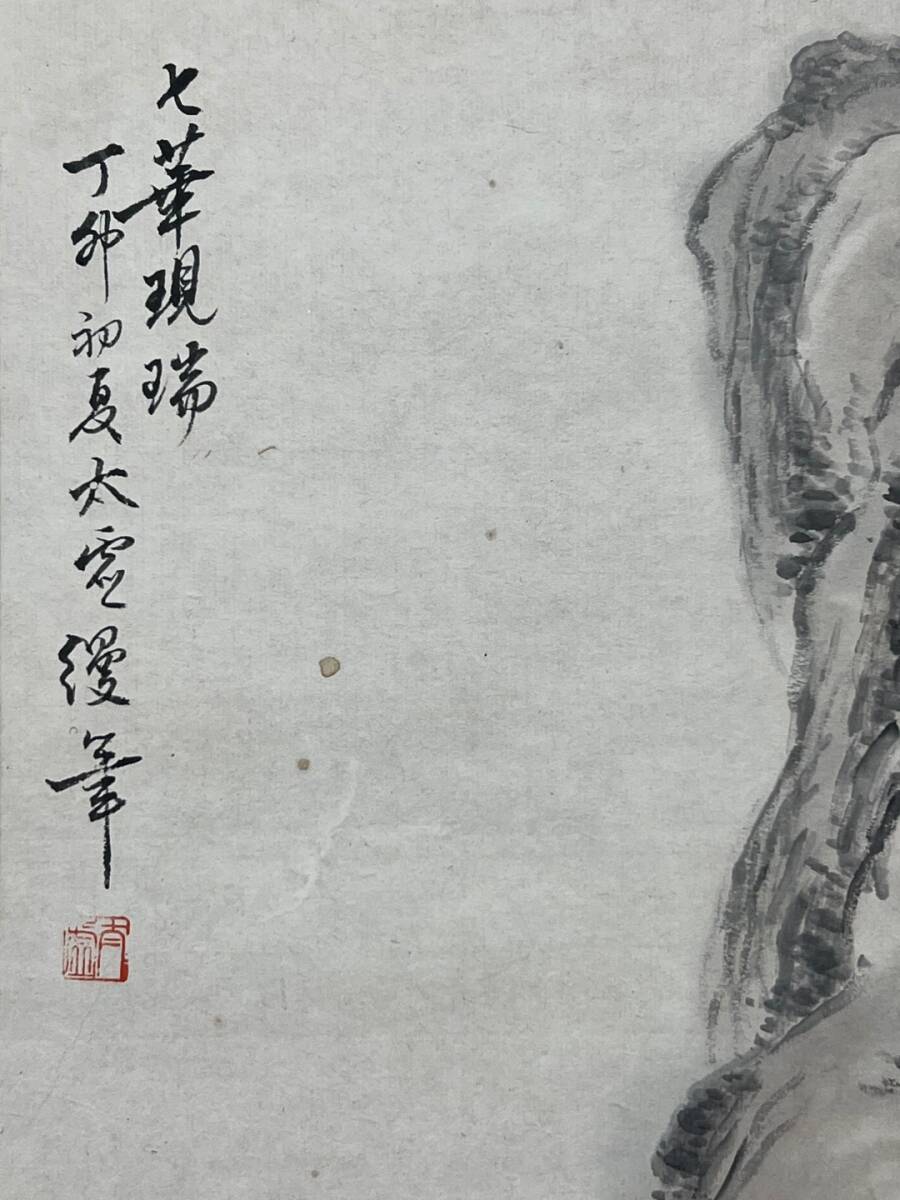 七華現瑞
丁卯初夏太虛縵筆